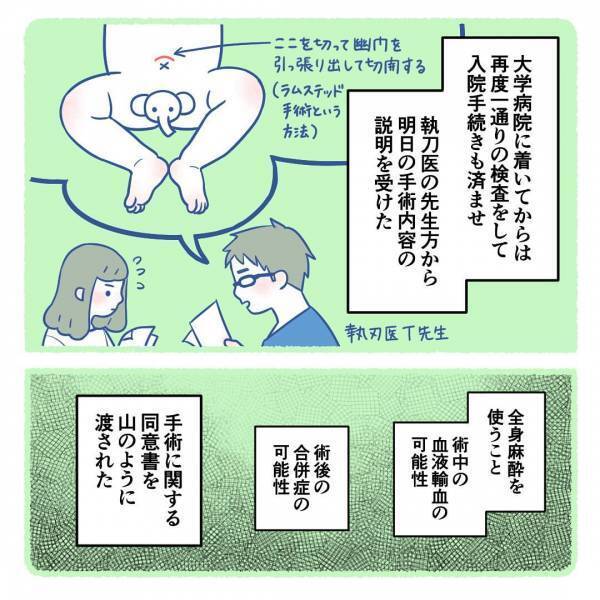 大学病院に着いてからは
再度一通りの検査をして
入院手続きも済ませ
執刀医の先生方から
明日の手術内容の
説明を受けた
ここを切って幽門を
引っ張り出して切開する
(ラムステッド
手術という
方法)
執刀医T先生
全身麻酔を
使うこと
術中の
血液輸血の
可能性
術後の
合併症の
可能性
手術に関する
同意書を
山のように
渡された